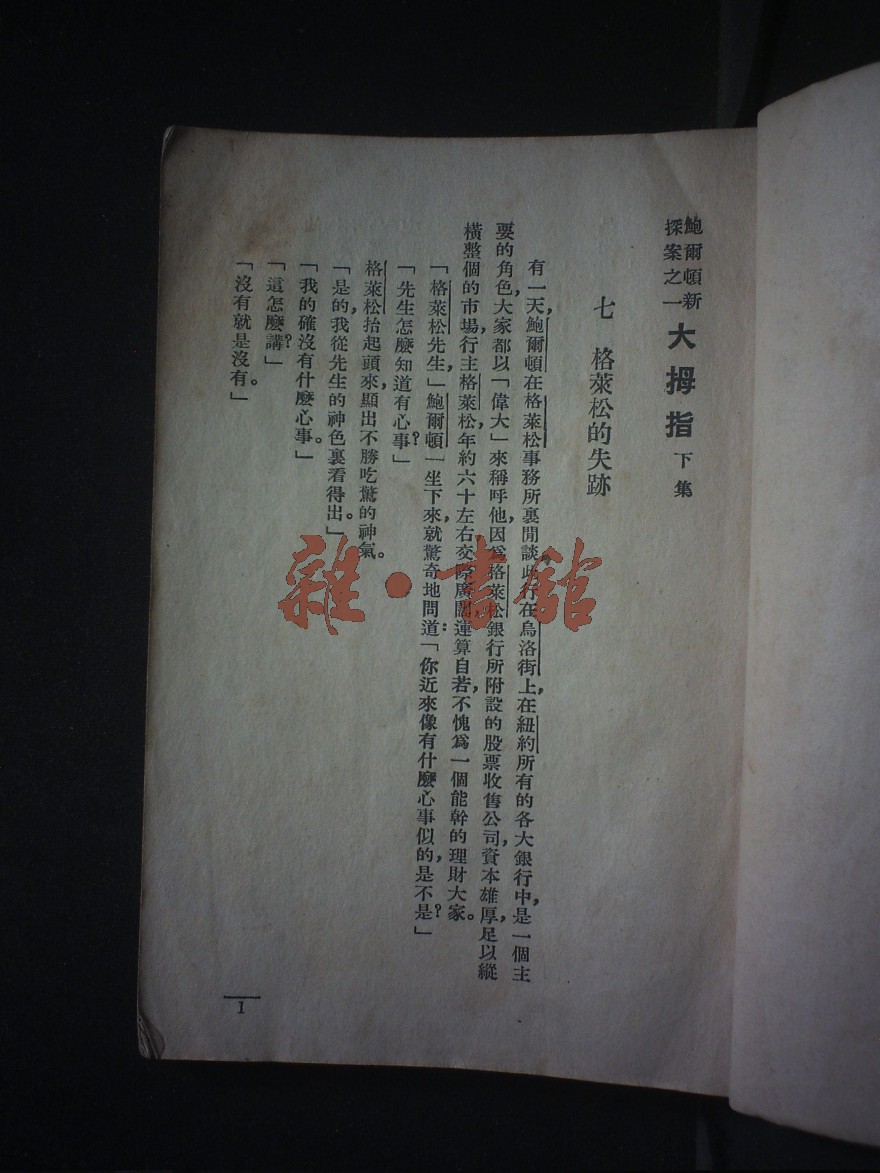 鮑爾頓新
探案之一
大拇指 下集
七 格萊松的失跡
有一天，鮑爾頓在格萊松事務所裏閒談，此行在烏洛街上，在紐約所有的各大銀行中，是一個主
要的角色，大家都以「偉大」來稱呼他，因爲格萊松銀行所附設的股票收售公司，資本雄厚，足以縱
橫整個的市場，行主格萊松，年約六十左右，交際廣闊，運算自若，不愧爲一個能幹的理財大家。
「格萊松先生，」鮑爾頓一坐下來，就驚奇地問道：「你近來像有什麼心事似的，是不是？」
「先生怎麼知道有心事？」
格萊松抬起頭來，顯出不勝吃驚的神氣。
「是的，我從先生的神色裏看得出。」
「我的確沒有什麼心事。」
「這怎麼講？」
「沒有就是沒有。」
1
雜·書館